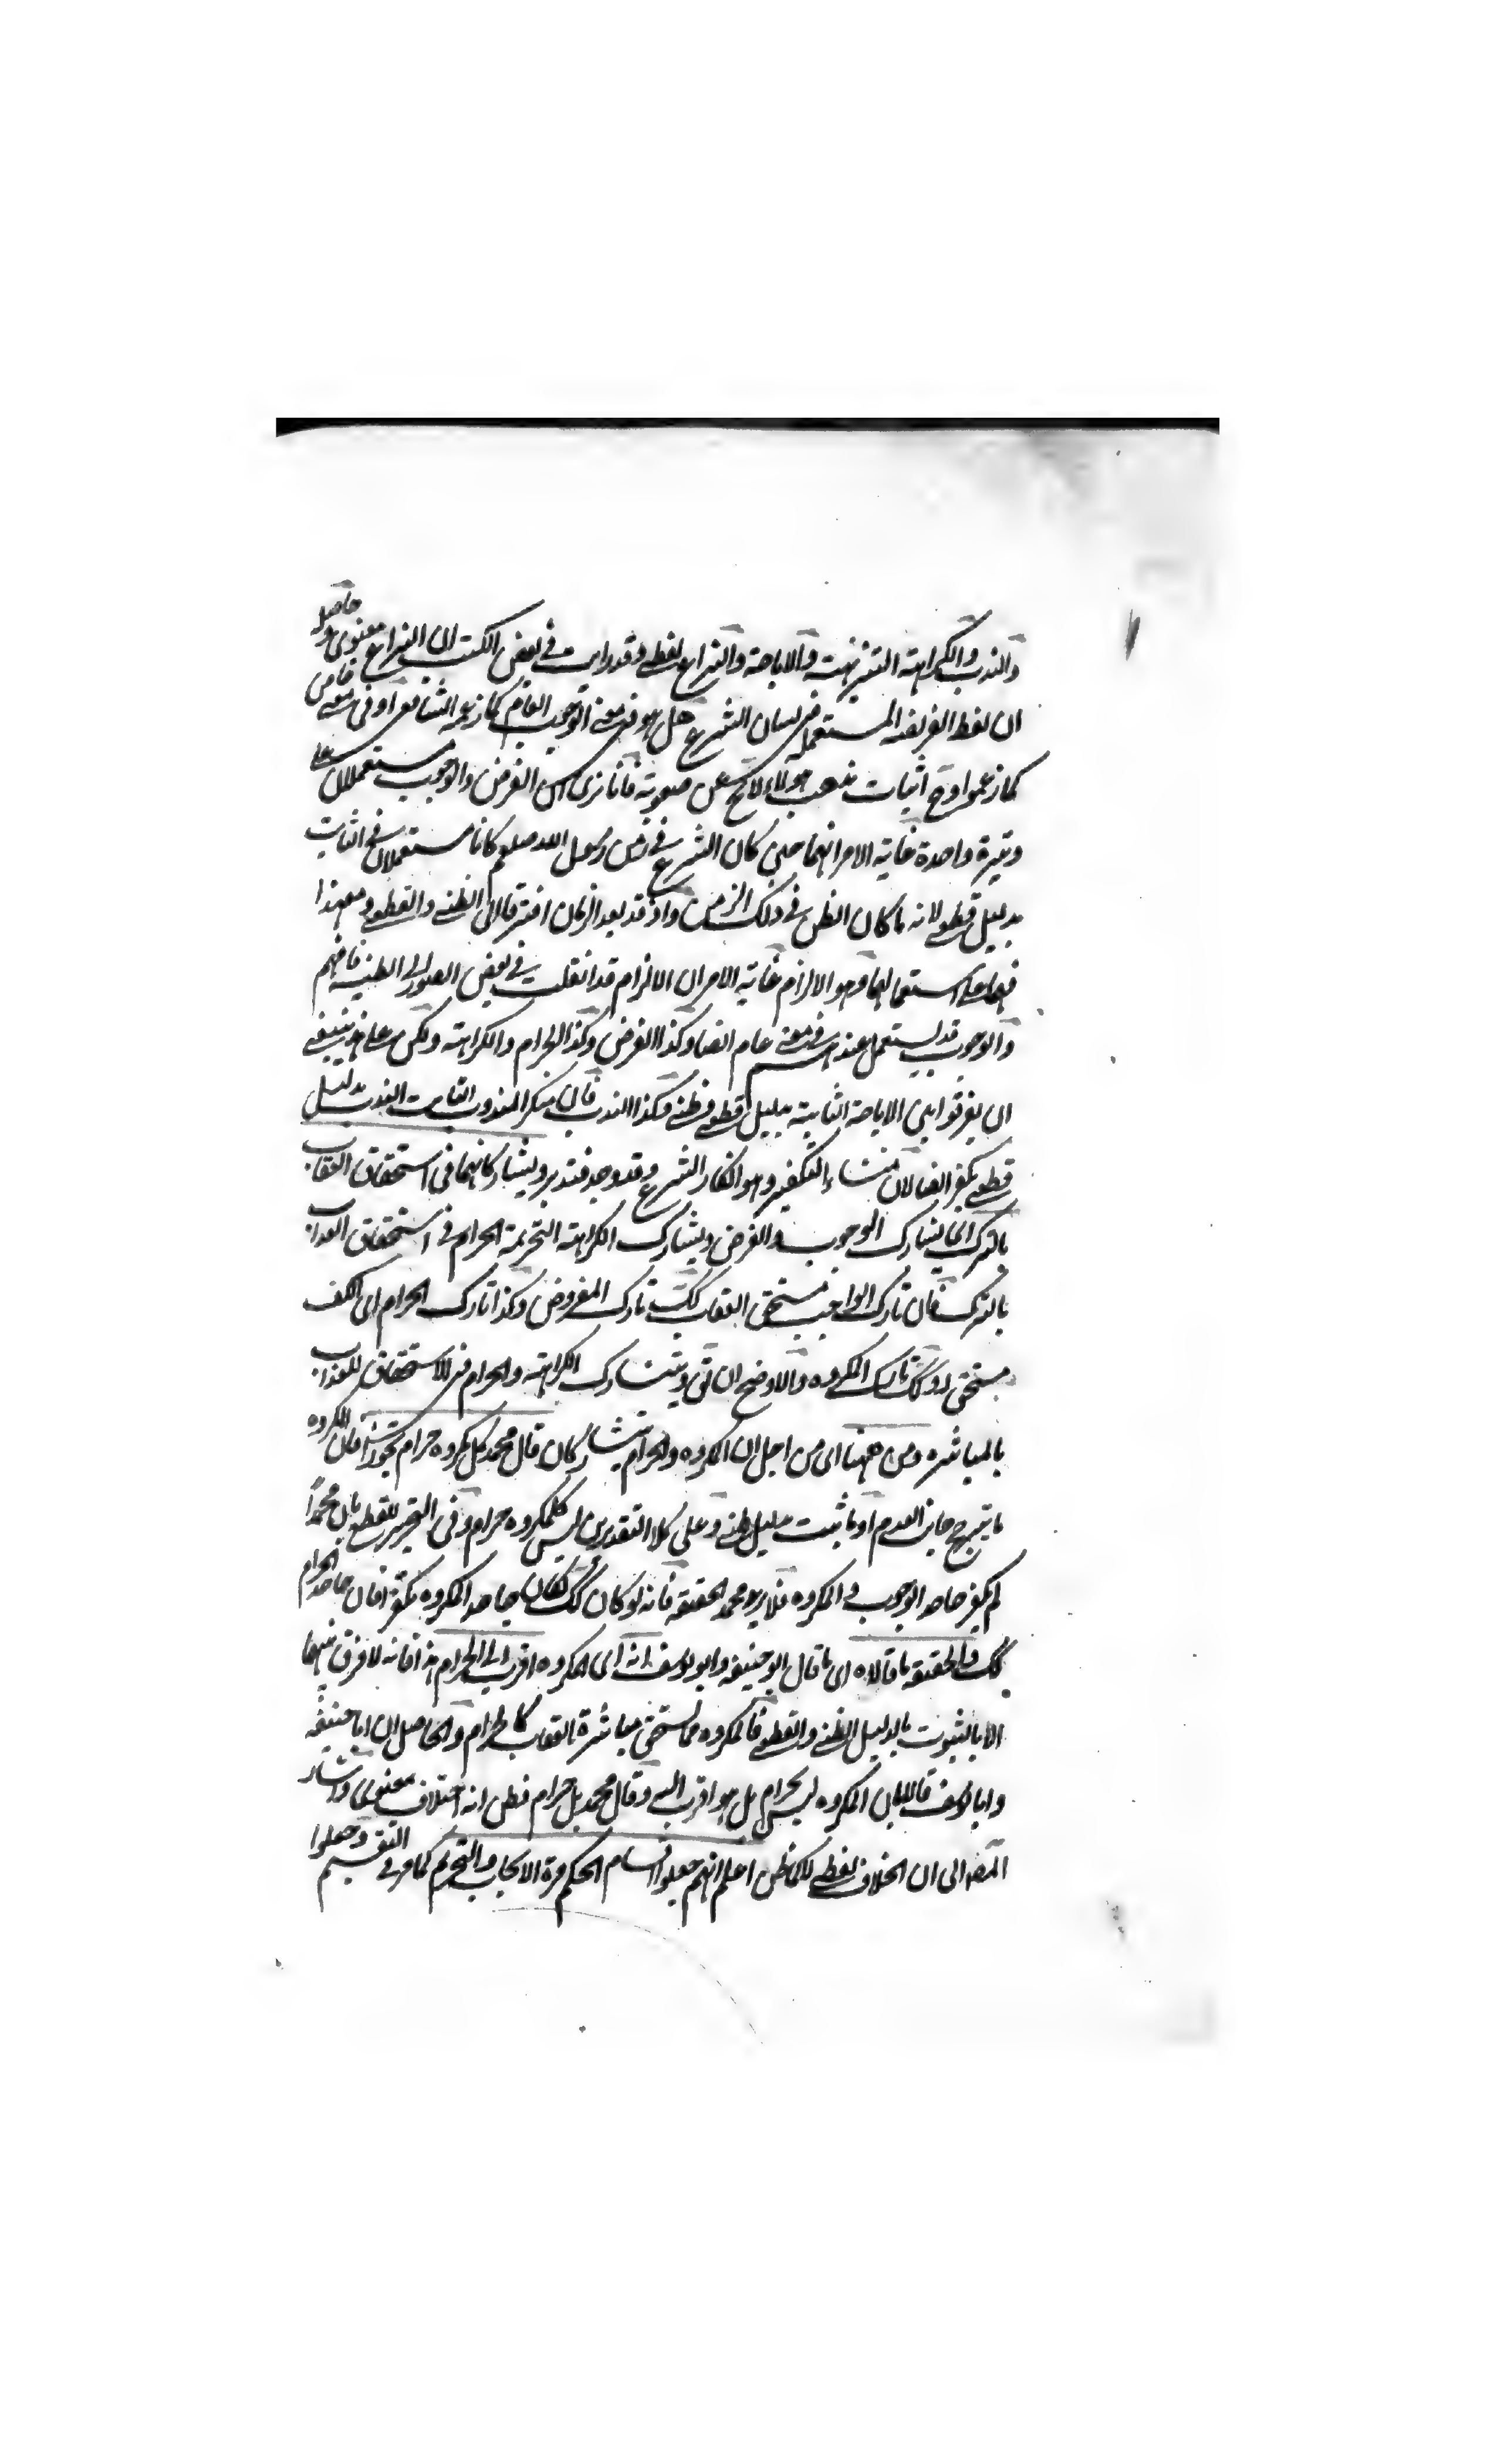 والندب والكراهته التنزيهته والاباحة والنزاع لفظے وقد رايت فے بعض الكتب ان النزاع معنوى وحاصله
ان لفظ الفريضه المستعمله فى لسان الشرع هل هو فى معنے الوجوب العام كما زعمه الشافعى او فى معنے خاص
كما زعموا وح اثبات مذهب هولاء لا يخ عن صعوبة فانا نرى ان الفرض والوجوب مستعملان علے
وتيرة واحدة غاية الامر انهما حين كان الشرع فے زمن رسول الله صلعم كانا مستعملان فے اثبات
بدليل قطعے لانه ما كان الظن فے ذلك الزمن واذ قد بعد الزمان افترقا الى الظنے والقطعے ومع هذا
فهما على استعمالهما وهو الالزام غاية الامر ان الالزام قد انقلت فے بعض الصور الى الظنية فافهم
والوجوب قد يستعمل عندهم فى معنے عام ايضا وكذا الفرض وكذا الحرام والكراهته ولكن على هذا ينبغے
ان يفرقوا بين الاباحة الثابتة بدليل قطعے وظنے وكذا الندب فان منكر المندوب الثابت الندب بدليل
قطعے يكفر ايضا لان منشاء التكفير وهو انكار الشرع وقد وجد فتدبر ويشاركانهما فى استحقاق العقاب
بالترك اى يشارك الوجوب والفرض ويشارك الكراهته التحريمة الحرام فے استحقاق العذاب
بالترك فان تارك الواجب مستحق العقاب كك تارك المفروض وكذا تارك الحرام اى الكف
مستحق له وكك تارك المكروه والاوضح ان تق ويتشارك الكراهته والحرام فى الاستحقاق للعذاب
بالمباشره ومن ههنا اى من اجل ان المكروه والحرام يتشاركان قال محمد كل مكروه حرام تجوزا فان المكروه
ما يترجح جانب العدم او ما ثبت بدليل ظنے وعلى كلا التقديرين ليس كلمكروه حرام وفى التحرير للقطع بان محمدا
لم يكفر جاحد الوجوب والمكروه فلا يريد محمد الحقيقه فانه لو كان كك لكان جاحد المكروه يكفر فان جاحد الحرام
كك والحقيقه ما قالاه اى ما قال ابو حنيفه وابو يوسف انه اى المكروه اقرب الى الحرام هذا فانه لا فرق بينهما
الا بالثبوت بالدليل الظنے والقطعے فالمكروه مما يستحق مباشرة العقاب كالحرام والحاصل ان ابا حنيفه
وابا يوسف قالا بان المكروه ليس بحرام بل هو اقرب اليه وقال محمد بل حرام فظن انه اختلاف معنوى واشار
المصه الى ان الخلاف لفظے لا كما ظن اعلم انهم جعلوا اقسام الحكم مرة الايجاب والتحريم كما مر فے التقسيم وجعلوا